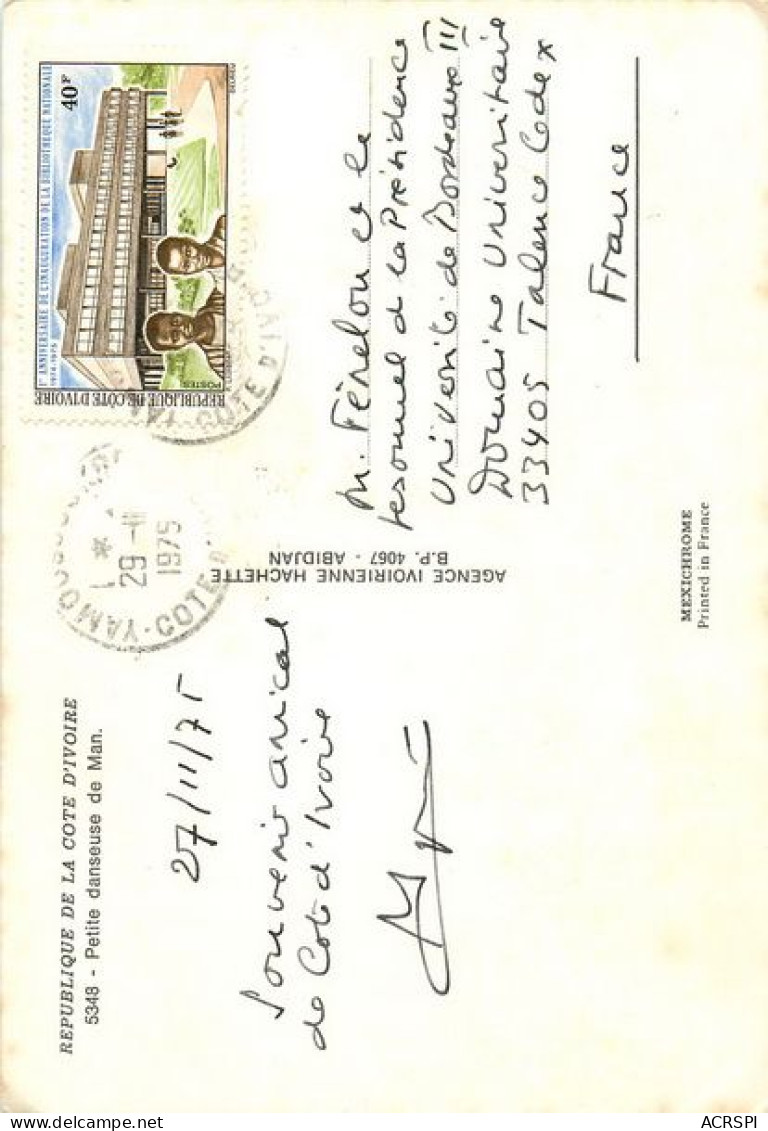 REPUBLIQUE DE LA COTE D'IVOIRE
5348 - Petite danseuse de Man.
27/11/75
Souvenir amical
de Cote d'Ivoire
AGENCE IVOIRIENNE HACHETTE
B.P. 4067 - ABIDJAN
1er ANNIVERSAIRE DE L'INAUGURATION DE LA BIBLIOTHEQUE NATIONALE
1974-1975
40F
POSTES
REPUBLIQUE DE CÔTE D'IVOIRE
29-11
1975
COTE D'IVOIRE
M. Fénelon et le
personnel de la Présidence
Université de Bordeaux III
Domaine Universitaire
33405 Talence Cedex
France
MEXICHROME
Printed in France
ACRSPI